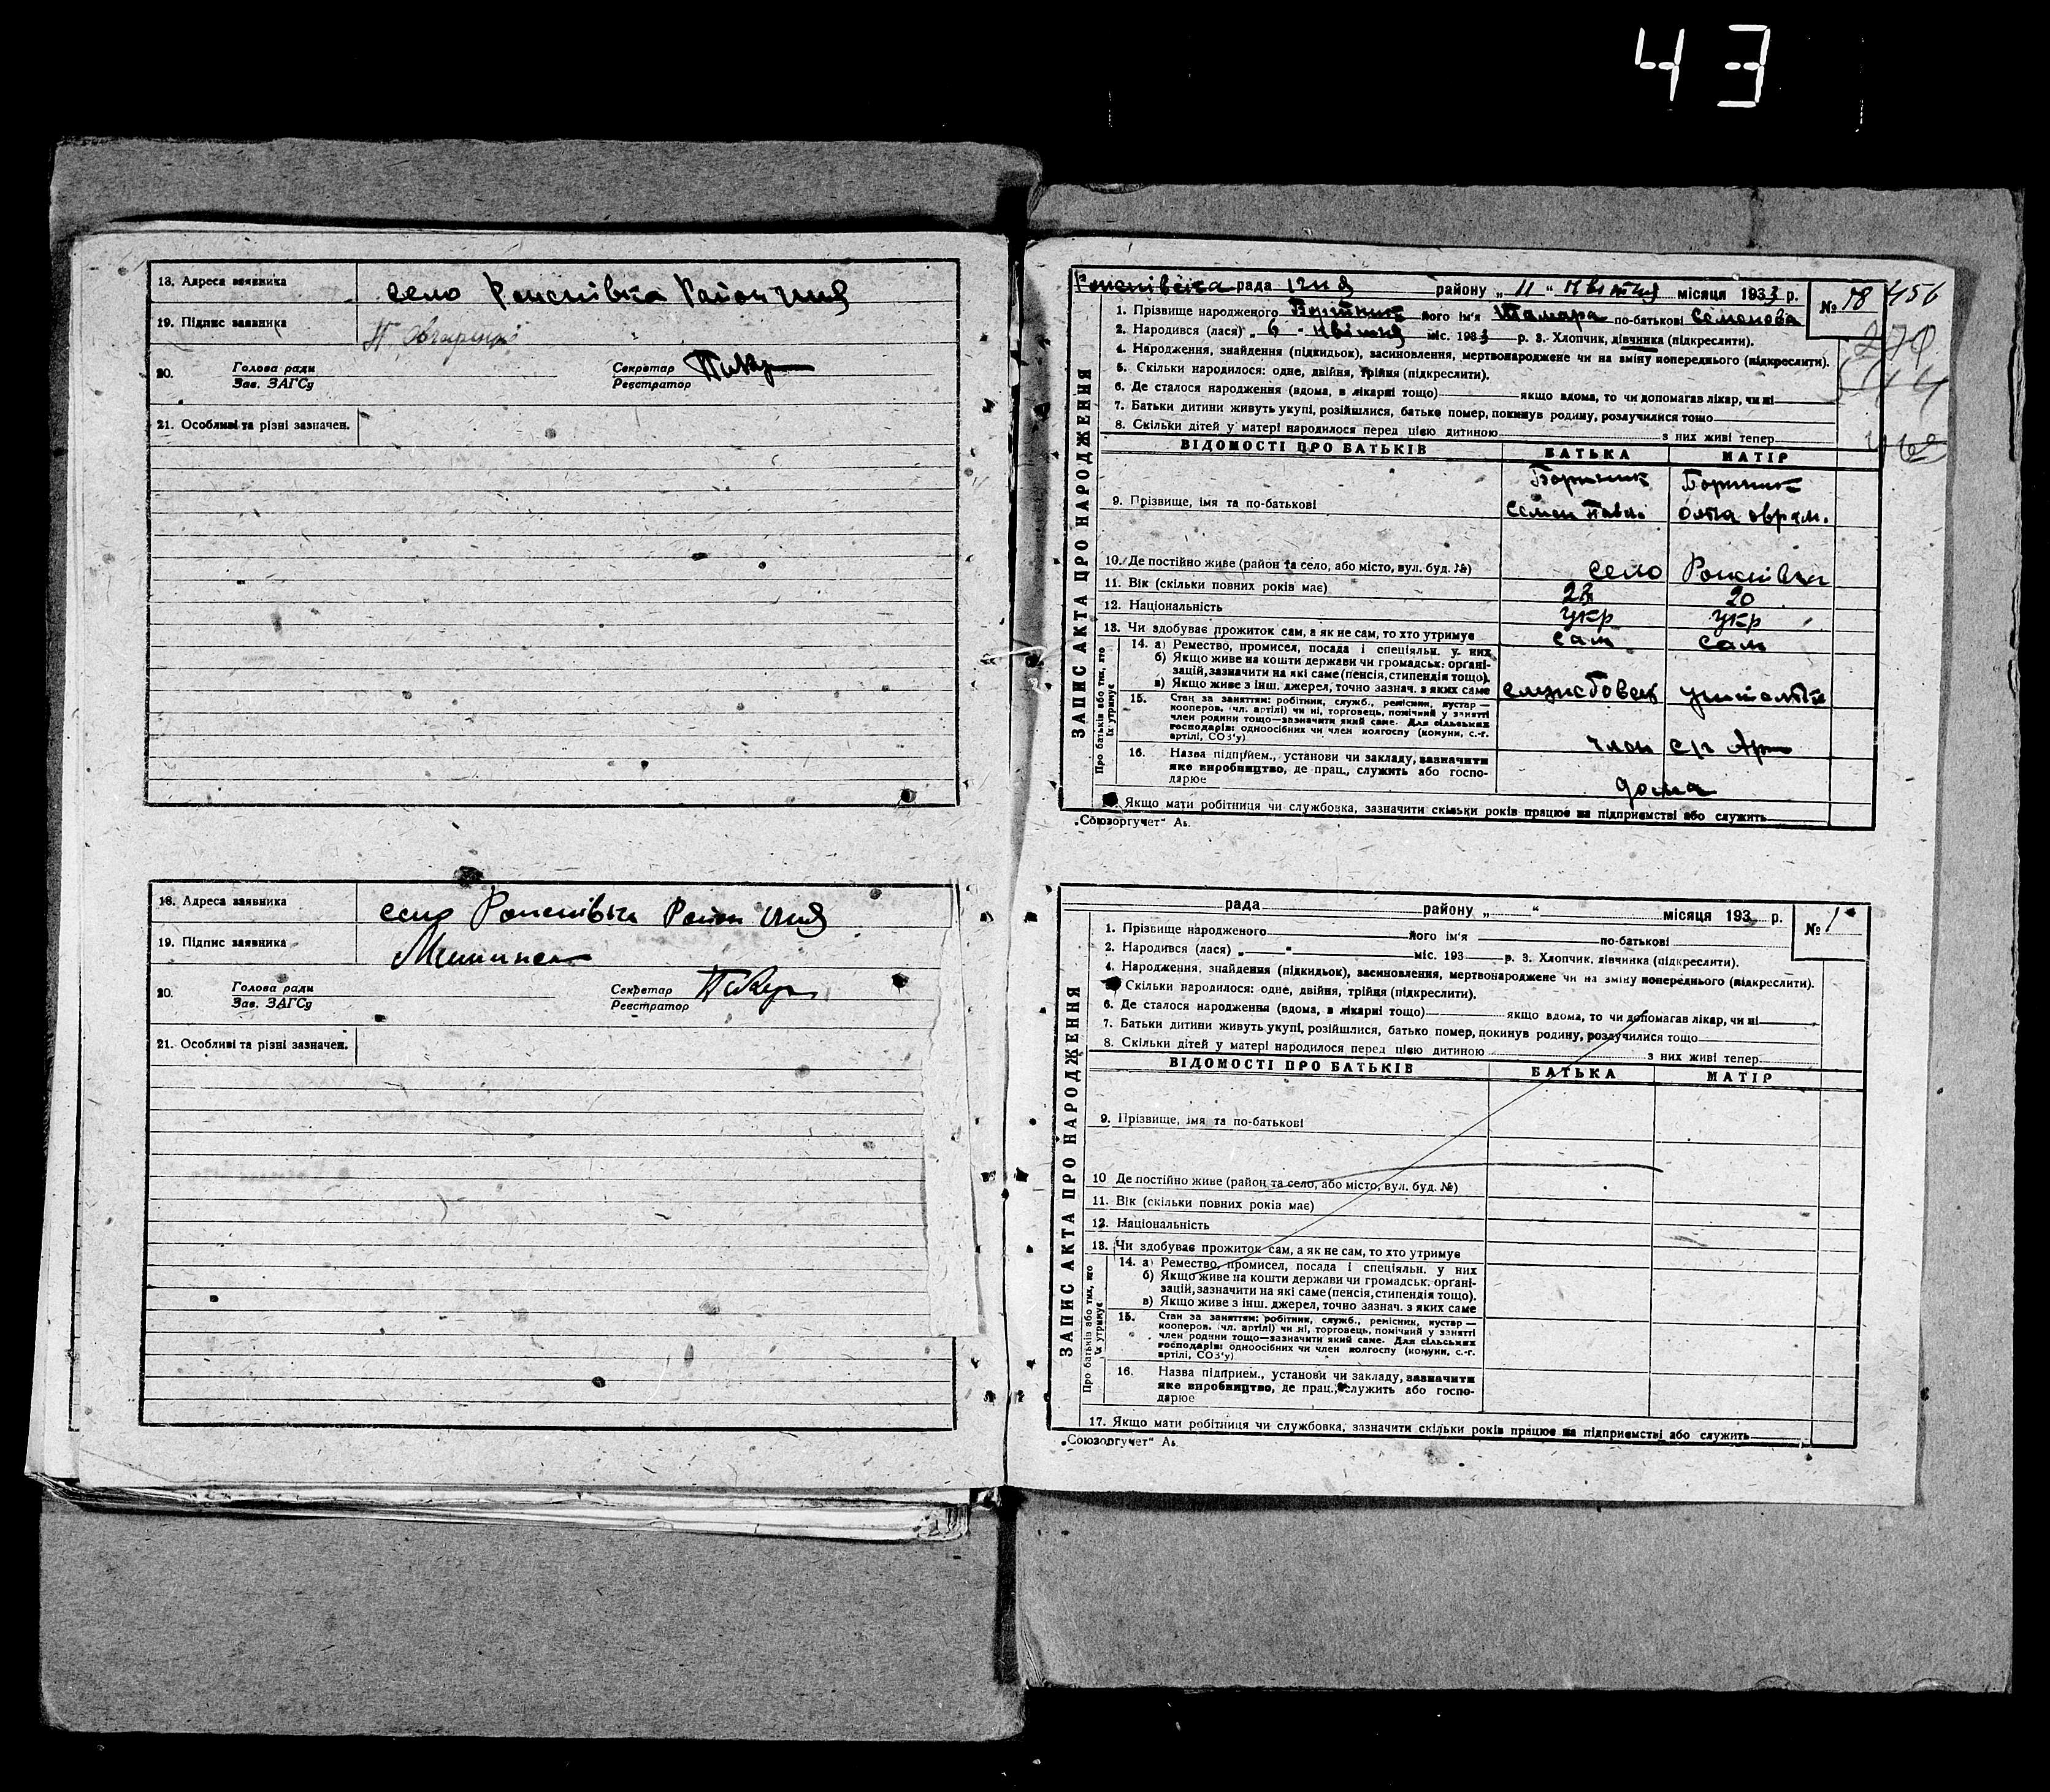 43
18. Адреса заявника
село Рожнівка Район Ічня
19. Підпис заявника
20. Голова ради
Зав. ЗАГСу
Секретар
Реєстратор
21. Особливі та різні зазначен.
18. Адреса заявника
село Рожнівка Район Ічня
19. Підпис заявника
20. Голова ради
Зав. ЗАГСу
Секретар
Реєстратор
21. Особливі та різні зазначен.
ЗАПИС АКТА ПРО НАРОДЖЕННЯ
рада Ічня району „ 11 “ квітня місяця 1933 р.
№ 18 456
1. Прізвище народженого його ім'я Тамара по-батькові Семенова
2. Народився (лася) „ 6 “ квітня міс. 1933 р. 3. Хлопчик, дівчинка (підкреслити).
4. Народження, знайдення (підкидьок), засиновлення, мертвонароджене чи на зміну попереднього (підкреслити).
5. Скільки народилося: одне, двійня, трійня (підкреслити).
6. Де сталося народження (вдома, в лікарні тощо) якщо вдома, то чи допомагав лікар, чи ні
7. Батьки дитини живуть укупі, розійшлися, батько помер, покинув родину, розлучилися тощо
8. Скільки дітей у матері народилося перед цією дитиною з них живі тепер
ВІДОМОСТІ ПРО БАТЬКІВ БАТЬКА МАТІР
9. Прізвище, імя та по-батькові
Семен Павл.
10. Де постійно живе (район та село, або місто, вул. буд. №) село Рожнівка
11. Вік (скільки повних років має) 20
12. Національність укр укр
13. Чи здобуває прожиток сам, а як не сам, то хто утримує сам сам
Про батьків або тих, хто їх утримує
14. а) Ремество, промисел, посада і спеціяльн. у них
б) Якщо живе на кошти держави чи громадськ. органі-
зацій, зазначити на які саме (пенсія, стипендія тощо).
в) Якщо живе з інш. джерел, точно зазнач. з яких саме службовець
15. Стан за заняттям: робітник, служб., ремісник, кустар—
кооперов. (чл. артілі) чи ні, торговець, помічний у занятті
член родини тощо—зазначити який саме. Для сільських
господарів: одноосібних чи член колгоспу (комуни, с.-г.
артілі, СОЗ'у) член с/г Арт
16. Назва підприєм., установи чи закладу, зазначити
яке виробництво, де прац., служить або госпо-
дарює дома
Якщо мати робітниця чи службовка, зазначити скільки років працює на підприємстві або служить
„Союзоргучет“ Аь.
ЗАПИС АКТА ПРО НАРОДЖЕННЯ
рада району „ “ місяця 193 р.
№ 1
1. Прізвище народженого його ім'я по-батькові
2. Народився (лася) „ “ міс. 193 р. 3. Хлопчик, дівчинка (підкреслити).
4. Народження, знайдення (підкидьок), засиновлення, мертвонароджене чи на зміну попереднього (підкреслити).
Скільки народилося: одне, двійня, трійня (підкреслити).
6. Де сталося народження (вдома, в лікарні тощо) якщо вдома, то чи допомагав лікар, чи ні
7. Батьки дитини живуть укупі, розійшлися, батько помер, покинув родину, розлучилися тощо
8. Скільки дітей у матері народилося перед цією дитиною з них живі тепер
ВІДОМОСТІ ПРО БАТЬКІВ БАТЬКА МАТІР
9. Прізвище, імя та по-батькові
10 Де постійно живе (район та село, або місто, вул. буд. №)
11. Вік (скільки повних років має)
12. Національність
13. Чи здобуває прожиток сам, а як не сам, то хто утримує
Про батьків або тих, хто їх утримує
14. а) Ремество, промисел, посада і спеціяльн. у них
б) Якщо живе на кошти держави чи громадськ. органі-
зацій, зазначити на які саме (пенсія, стипендія тощо).
в) Якщо живе з інш. джерел, точно зазнач. з яких саме
15. Стан за заняттям: робітник, служб., ремісник, кустар—
кооперов. (чл. артілі) чи ні, торговець, помічний у занятті
член родини тощо—зазначити який саме. Для сільських
господарів: одноосібних чи член колгоспу (комуни, с.-г.
артілі, СОЗ'у)
16. Назва підприєм., установи чи закладу, зазначити
яке виробництво, де прац., служить або госпо-
дарює
17. Якщо мати робітниця чи службовка, зазначити скільки років працює на підприємстві або служить
„Союзоргучет“ Аь.